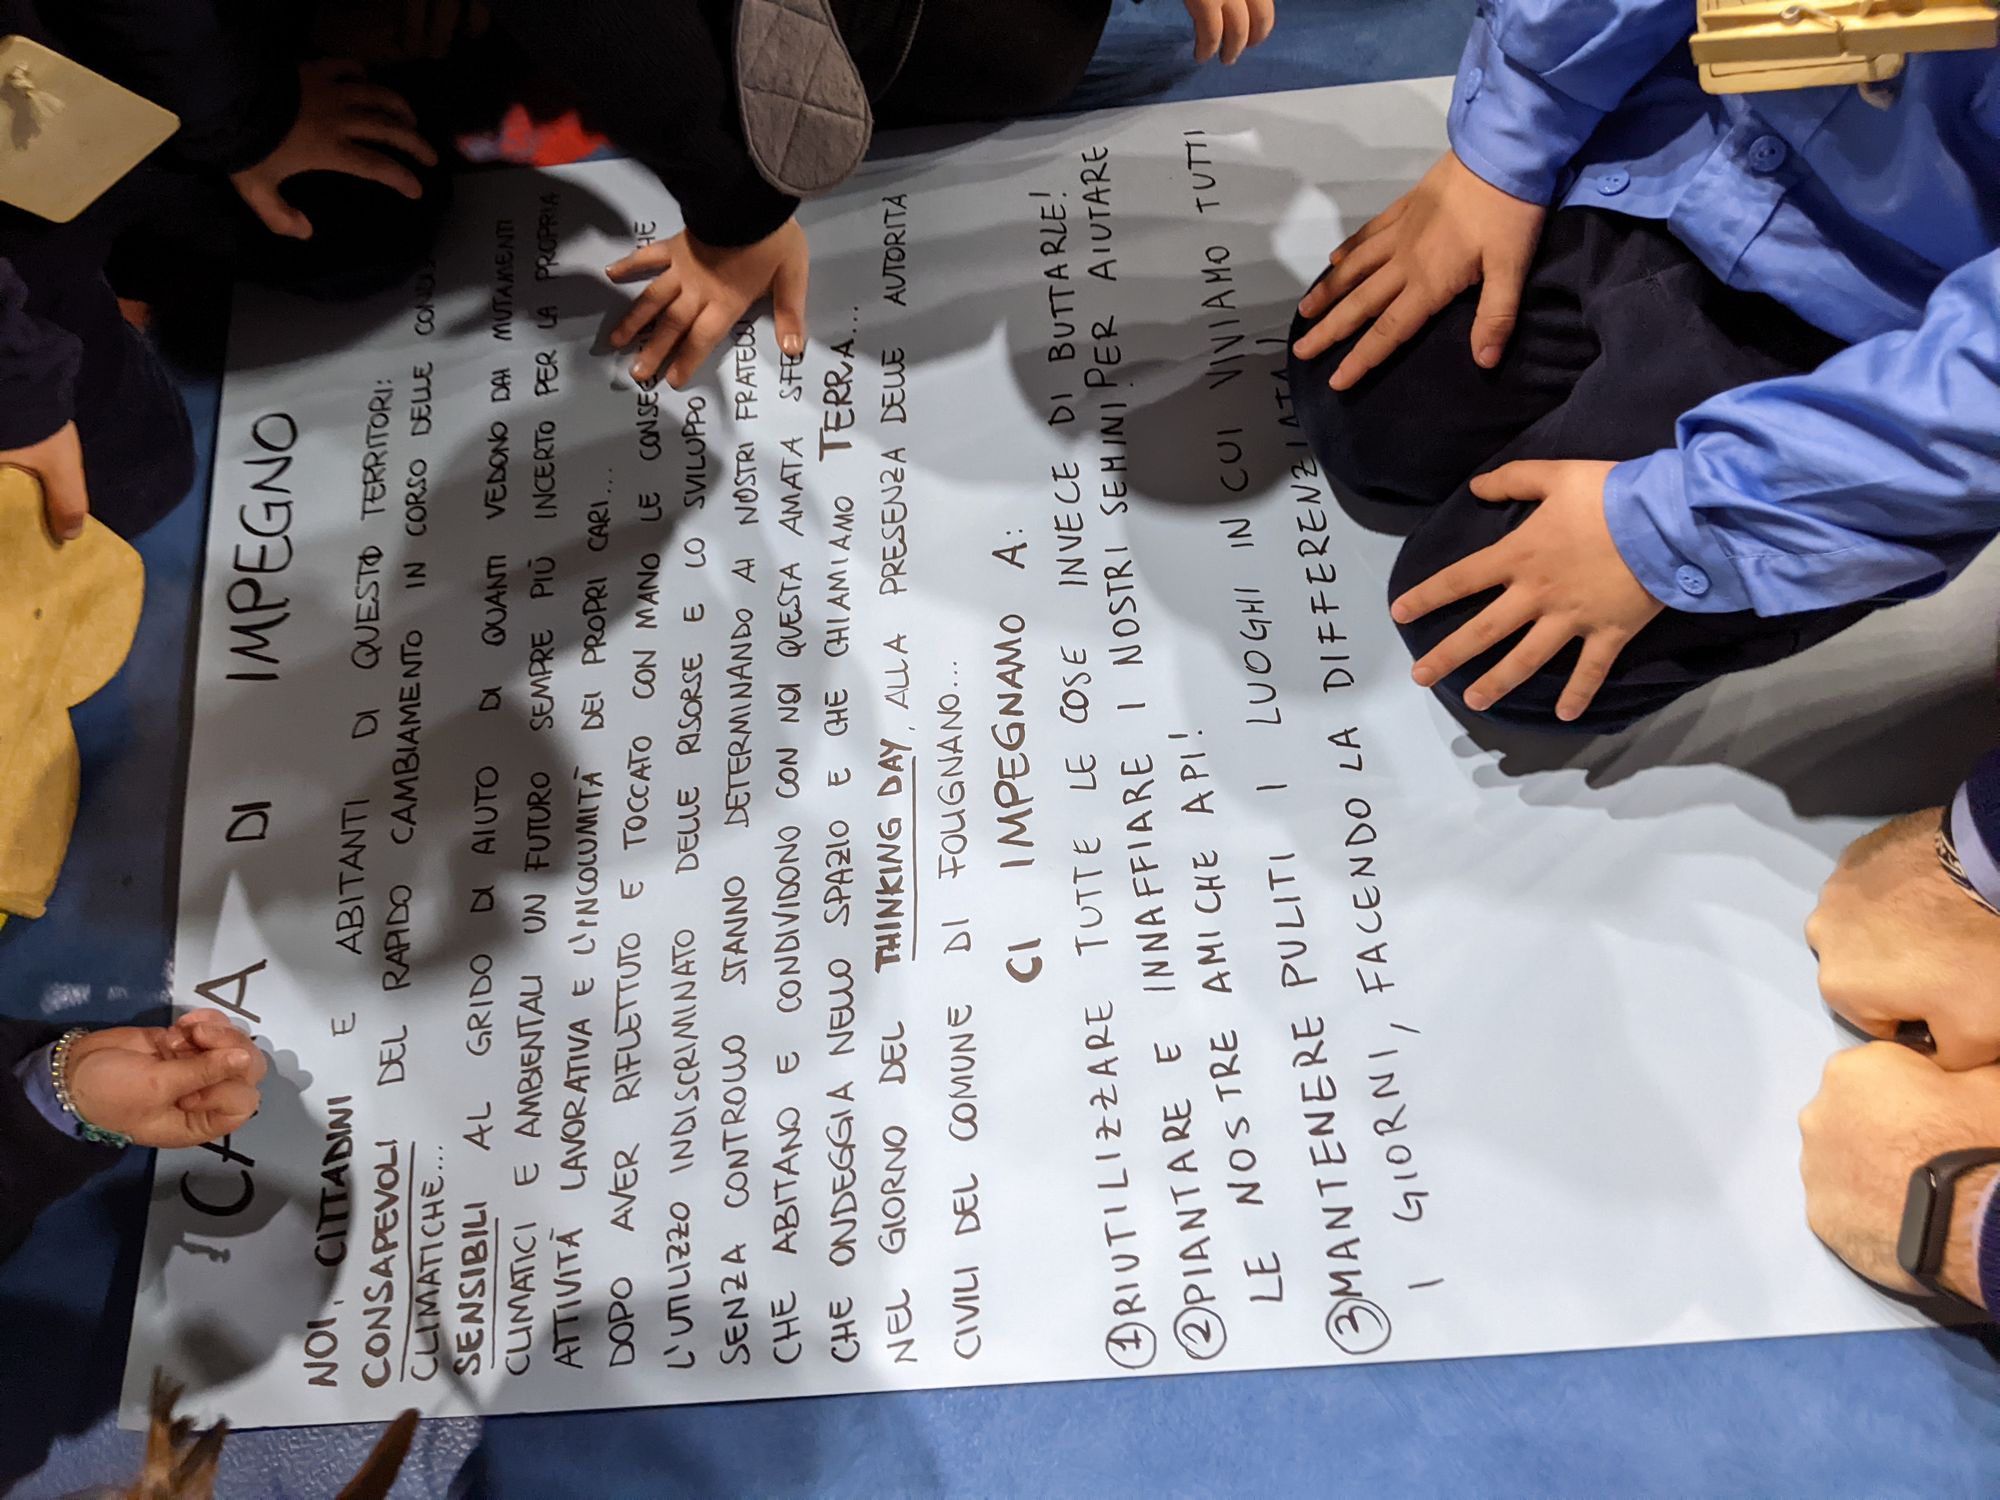 CARTA DI IMPEGNO
NOI, CITTADINI E ABITANTI DI QUESTO TERRITORI:
CONSAPEVOLI DEL RAPIDO CAMBIAMENTO IN CORSO DELLE
CLIMATICHE...
SENSIBILI AL GRIDO DI AIUTO DI QUANTI VEDONO DAI MUTAMENTI
CLIMATICI E AMBIENTALI UN FUTURO SEMPRE PIÙ INCERTO PER LA PROPRIA
ATTIVITÀ LAVORATIVA E L'INCOLUMITÀ DEI PROPRI CARI...
DOPO AVER RIFLETTUTO E TOCCATO CON MANO LE CHE
L'UTILIZZO INDISCRIMINATO DELLE RISORSE E LO SVILUPPO
SENZA CONTROLLO STANNO DETERMINANDO AI NOSTRI
CHE ABITANO E CONDIVIDONO CON NOI QUESTA AMATA
CHE ONDEGGIA NELLO SPAZIO E CHE CHIAMIAMO TERRA...
NEL GIORNO DEL THINKING DAY, ALLA PRESENZA DELLE AUTORITÀ
CIVILI DEL COMUNE DI FOLIGNANO...
CI IMPEGNAMO A:
1 RIUTILIZZARE TUTTE LE COSE INVECE DI BUTTARLE!
2 PIANTARE E INNAFFIARE I NOSTRI SEMINI PER AIUTARE
LE NOSTRE AMICHE API!
3 MANTENERE PULITI I LUOGHI IN CUI VIVIAMO TUTTI
I GIORNI, FACENDO LA DIFFERENZIATA!